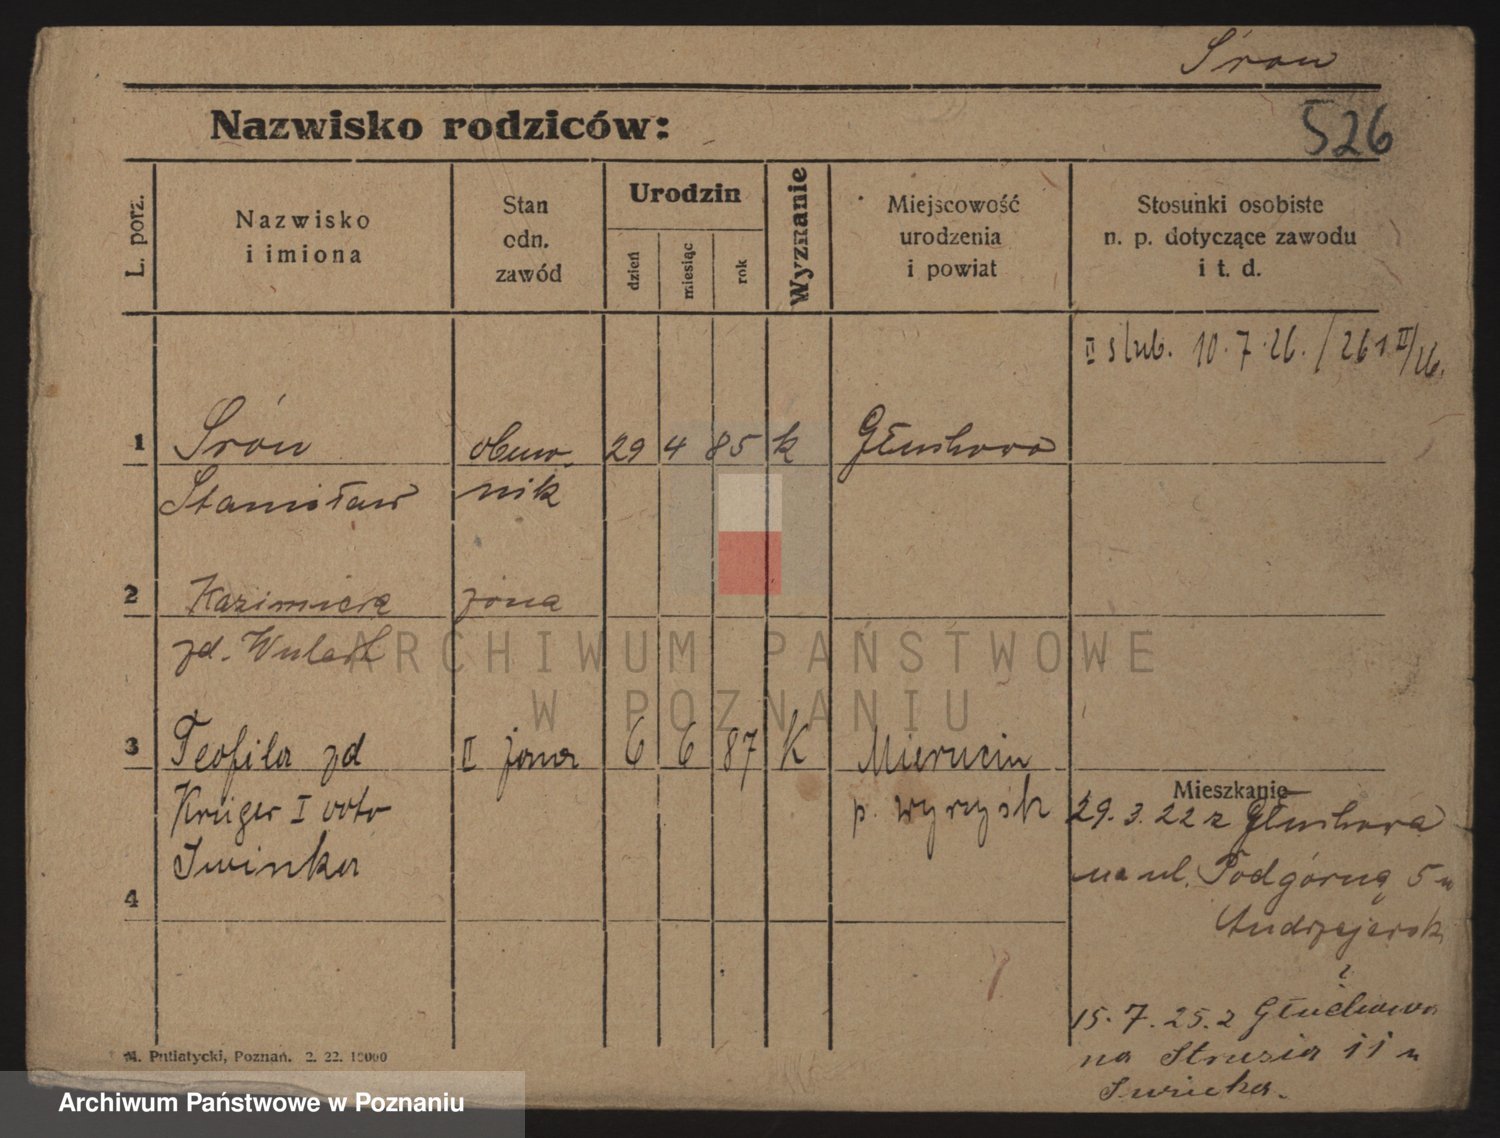 Śron
526
Nazwisko rodziców:
L. porz.
Nazwisko
i imiona
Stan
odn.
zawód
Urodzin
dzień
miesiąc
rok
Wyznanie
Miejscowość
urodzenia
i powiat
Stosunki osobiste
n. p. dotyczące zawodu
i t. d.
II ślub. 10.7.26. / 261 II/26.
1 Śrón obuw- 29 4 85 k Głuchowo
Stanisław nik
2 Kazimiera żona
zd.
3 Teofila zd II żona 6 6 87 K Mierucin
Krüger I voto p. Wyrzysk
Iwinka
4
Mieszkanie
29.3.22 z Głuchowa
na ul. Podgórną 5 u
15.7.25 z Głuchowa
na Strusia 11 u
Iwinka.
M. Putiatycki, Poznań. 2. 22. 10000
ARCHIWUM PAŃSTWOWE
W POZNANIU
Archiwum Państwowe w Poznaniu